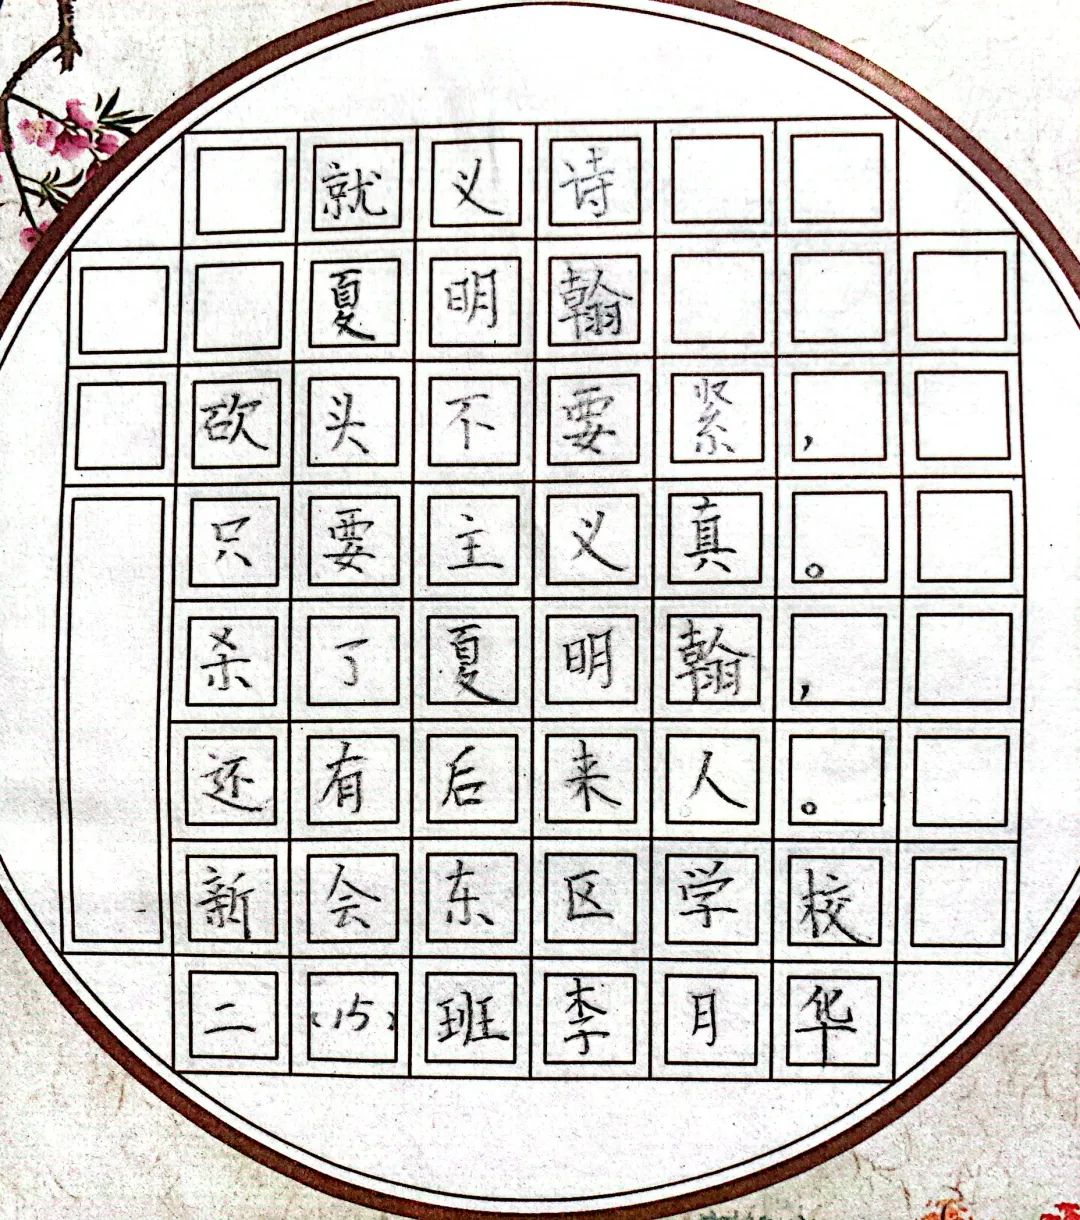 就义诗
夏明翰
砍头不要紧，
只要主义真。
杀了夏明翰，
还有后来人。
新会东区学校
二（15）班李月华